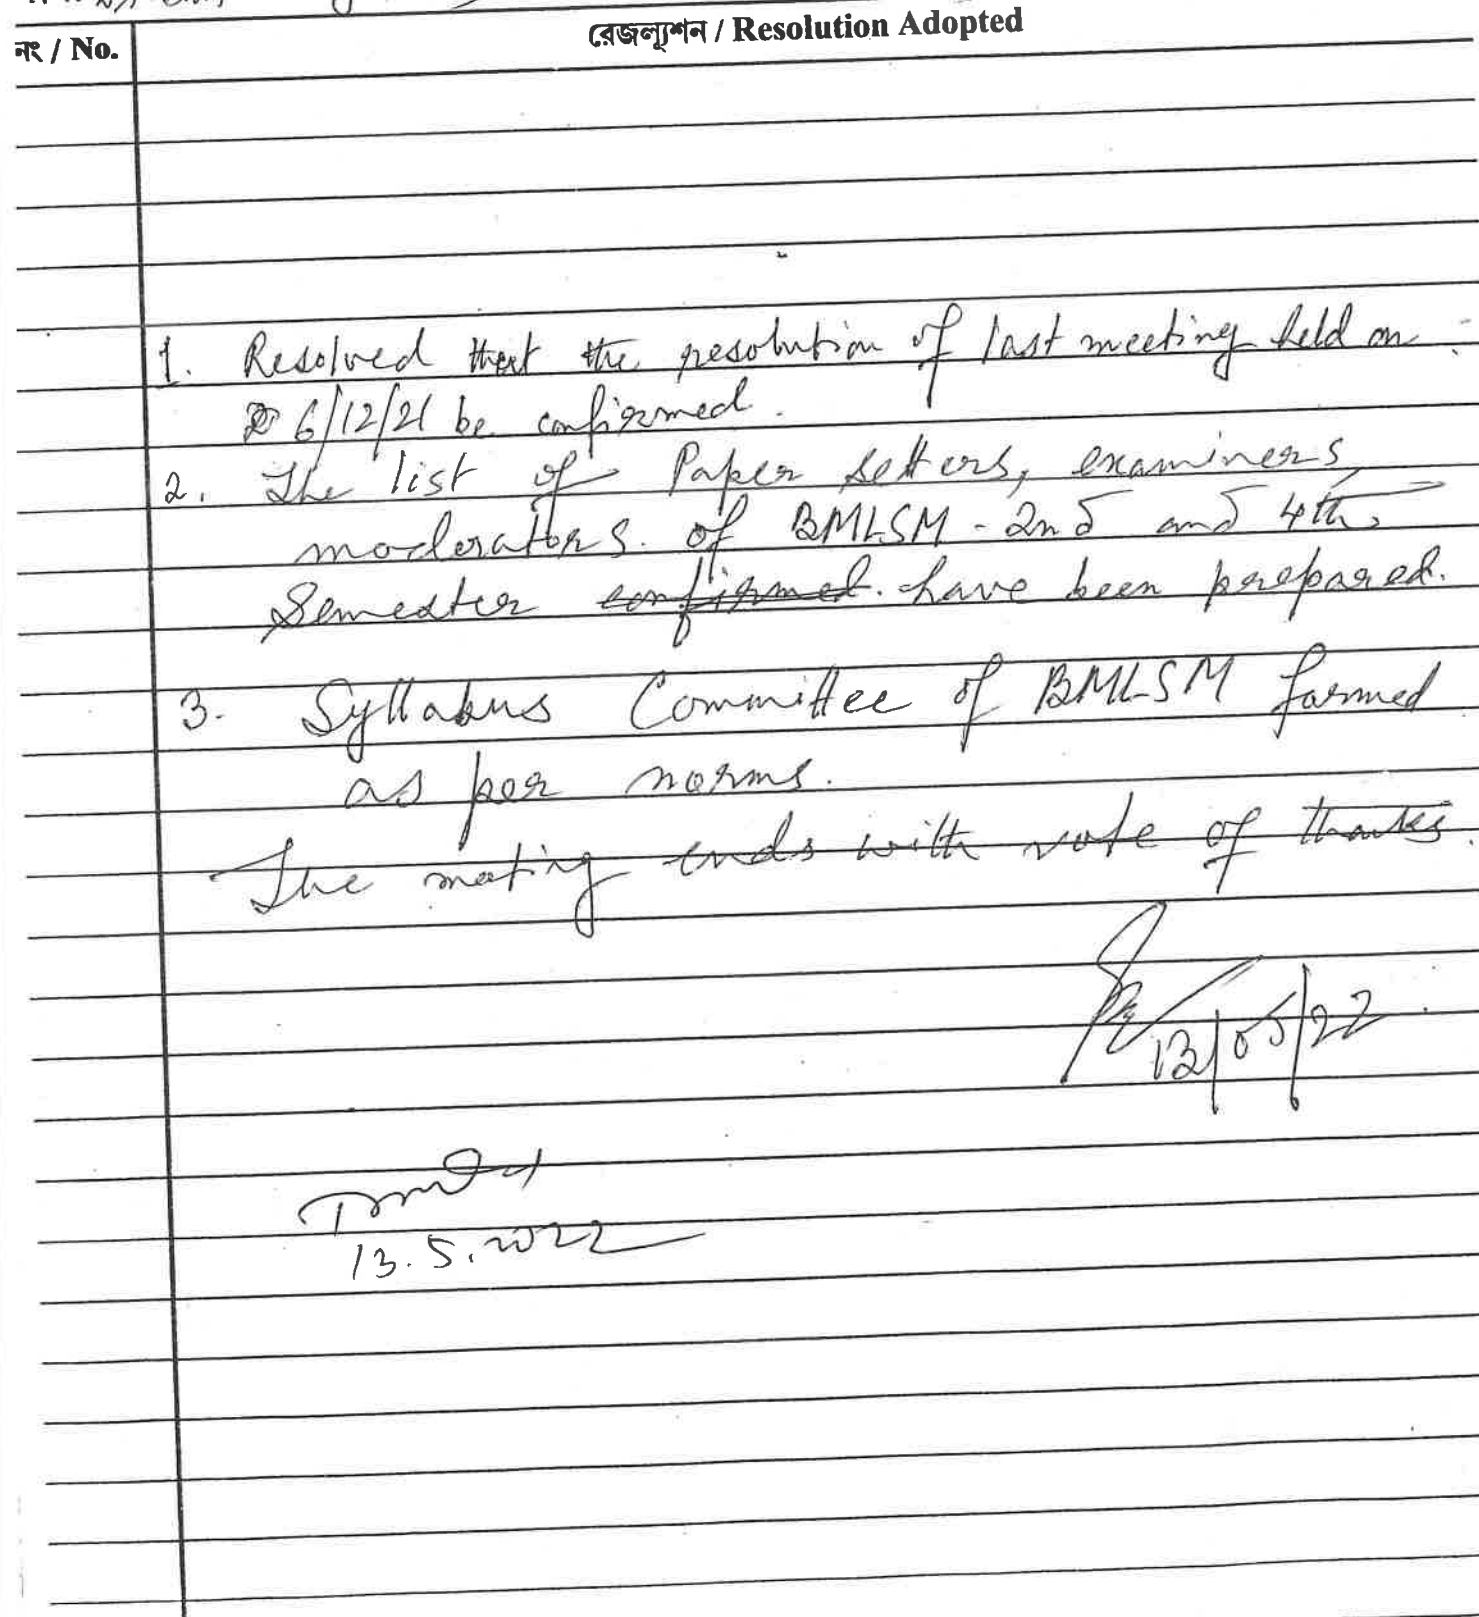 নং / No.
রেজল্যুশন / Resolution Adopted
1. Resolved that the resolution of last meeting held on
6/12/21 be confirmed.
2. The list of Paper setters, examiners,
moderators of BMLSM - 2nd and 4th
Semester confirmed have been prepared.
3. Syllabus Committee of BMLSM formed
as per norms.
The meeting ends with vote of thanks.
13/05/22
13.5.2022